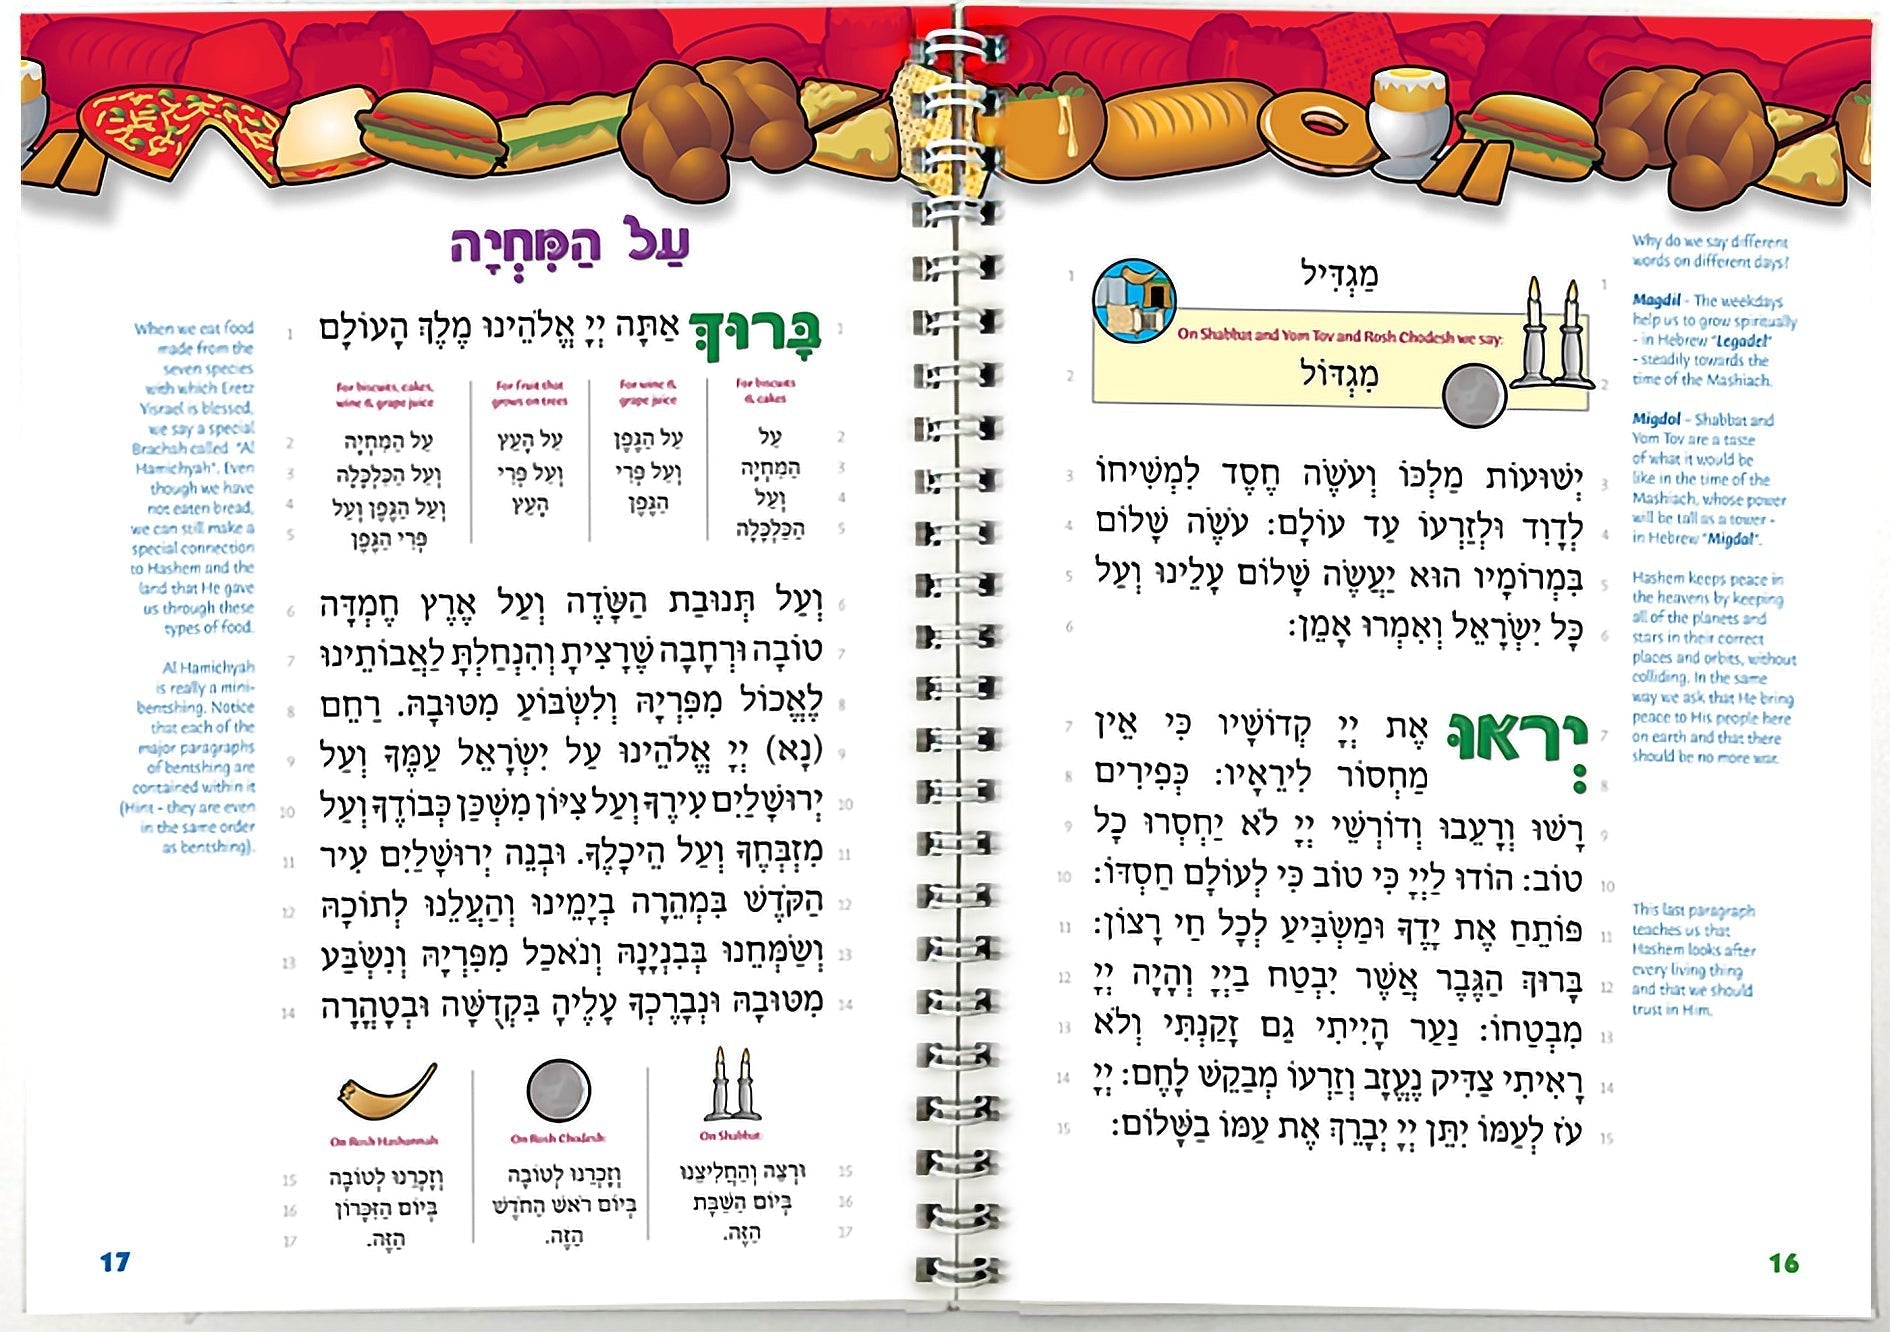 מַגְדִּיל
On Shabbat and Yom Tov and Rosh Chodesh we say:
מִגְדּוֹל
1
2
יְשׁוּעוֹת מַלְכּוֹ וְעֹשֶׂה חֶסֶד לִמְשִׁיחוֹ
לְדָוִד וּלְזַרְעוֹ עַד עוֹלָם: עֹשֶׂה שָׁלוֹם
בִּמְרוֹמָיו הוּא יַעֲשֶׂה שָׁלוֹם עָלֵינוּ וְעַל
כָּל יִשְׂרָאֵל וְאִמְרוּ אָמֵן:
3
4
5
6
יְראוּ אֶת יְיָ קְדוֹשָׁיו כִּי אֵין
מַחְסוֹר לִירֵאָיו: כְּפִירִים
רָשׁוּ וְרָעֵבוּ וְדוֹרְשֵׁי יְיָ לֹא יַחְסְרוּ כָל
טוֹב: הוֹדוּ לַיְיָ כִּי טוֹב כִּי לְעוֹלָם חַסְדּוֹ:
פּוֹתֵחַ אֶת יָדֶךָ וּמַשְׂבִּיעַ לְכָל חַי רָצוֹן:
בָּרוּךְ הַגֶּבֶר אֲשֶׁר יִבְטַח בַּיְיָ וְהָיָה יְיָ
מִבְטַחוֹ: נַעַר הָיִיתִי גַם זָקַנְתִּי וְלֹא
רָאִיתִי צַדִּיק נֶעֱזָב וְזַרְעוֹ מְבַקֵּשׁ לָחֶם: יְיָ
עֹז לְעַמּוֹ יִתֵּן יְיָ יְבָרֵךְ אֶת עַמּוֹ בַשָּׁלוֹם:
7
8
9
10
11
12
13
14
15
Why do we say different
words on different days?
Magdil - The weekdays
help us to grow spiritually
- in Hebrew "Legadel"
- steadily towards the
time of the Mashiach.
Migdol - Shabbat and
Yom Tov are a taste
of what it would be
like in the time of the
Mashiach, whose power
will be tall as a tower -
in Hebrew "Migdal".
Hashem keeps peace in
the heavens by keeping
all of the planets and
stars in their correct
places and orbits, without
colliding. In the same
way we ask that He bring
peace to His people here
on earth and that there
should be no more war.
This last paragraph
teaches us that
Hashem looks after
every living thing
and that we should
trust in Him.
16
עַל הַמִּחְיָה
בָּרוּךְ אַתָּה יְיָ אֱלֹהֵינוּ מֶלֶךְ הָעוֹלָם
1
For biscuits
& cakes
עַל
הַמִּחְיָה
וְעַל
הַכַּלְכָּלָה
For wine &
grape juice
עַל הַגֶּפֶן
וְעַל פְּרִי
הַגֶּפֶן
For fruit that
grows on trees
עַל הָעֵץ
וְעַל פְּרִי
הָעֵץ
For biscuits, cakes,
wine & grape juice
עַל הַמִּחְיָה
וְעַל הַכַּלְכָּלָה
וְעַל הַגֶּפֶן וְעַל
פְּרִי הַגֶּפֶן
2
3
4
5
וְעַל תְּנוּבַת הַשָּׂדֶה וְעַל אֶרֶץ חֶמְדָּה
טוֹבָה וּרְחָבָה שֶׁרָצִיתָ וְהִנְחַלְתָּ לַאֲבוֹתֵינוּ
לֶאֱכוֹל מִפִּרְיָהּ וְלִשְׂבּוֹעַ מִטּוּבָהּ. רַחֵם
(נָא) יְיָ אֱלֹהֵינוּ עַל יִשְׂרָאֵל עַמֶּךָ וְעַל
יְרוּשָׁלַיִם עִירֶךָ וְעַל צִיּוֹן מִשְׁכַּן כְּבוֹדֶךָ וְעַל
מִזְבְּחֶךָ וְעַל הֵיכָלֶךָ. וּבְנֵה יְרוּשָׁלַיִם עִיר
הַקֹּדֶשׁ בִּמְהֵרָה בְיָמֵינוּ וְהַעֲלֵנוּ לְתוֹכָהּ
וְשַׂמְּחֵנוּ בְּבִנְיָנָהּ וְנֹאכַל מִפִּרְיָהּ וְנִשְׂבַּע
מִטּוּבָהּ וּנְבָרֶכְךָ עָלֶיהָ בִּקְדֻשָּׁה וּבְטָהֳרָה
6
7
8
9
10
11
12
13
14
On Shabbat:
וּרְצֵה וְהַחֲלִיצֵנוּ
בְּיוֹם הַשַּׁבָּת
הַזֶּה.
On Rosh Chodesh:
וְזָכְרֵנוּ לְטוֹבָה
בְּיוֹם רֹאשׁ הַחֹדֶשׁ
הַזֶּה.
On Rosh Hashannah
וְזָכְרֵנוּ לְטוֹבָה
בְּיוֹם הַזִּכָּרוֹן
הַזֶּה.
15
16
17
When we eat food
made from the
seven species
with which Eretz
Yisrael is blessed,
we say a special
Brachah called "Al
Hamichyah". Even
though we have
not eaten bread,
we can still make a
special connection
to Hashem and the
land that He gave
us through these
types of food.
Al Hamichyah
is really a mini-
bentshing. Notice
that each of the
major paragraphs
of bentshing are
contained within it
(Hint - they are even
in the same order
as bentshing).
17